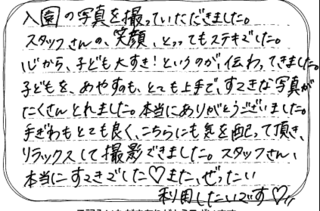 入園の写真を撮っていただきました。
スタッフさんの、笑顔、とってもステキでした。
心から、子ども大すき!というのが伝わってきました。
子どもを、あやすのも、とても上手で、すてきな写真が
たくさんとれました。本当にありがとうございました。
手ぎわもとても良く、こちらにも気を配って頂き、
リラックスして撮影できました。スタッフさん、
本当にすてきでした♡また、ぜったい
利用したいです♡!!